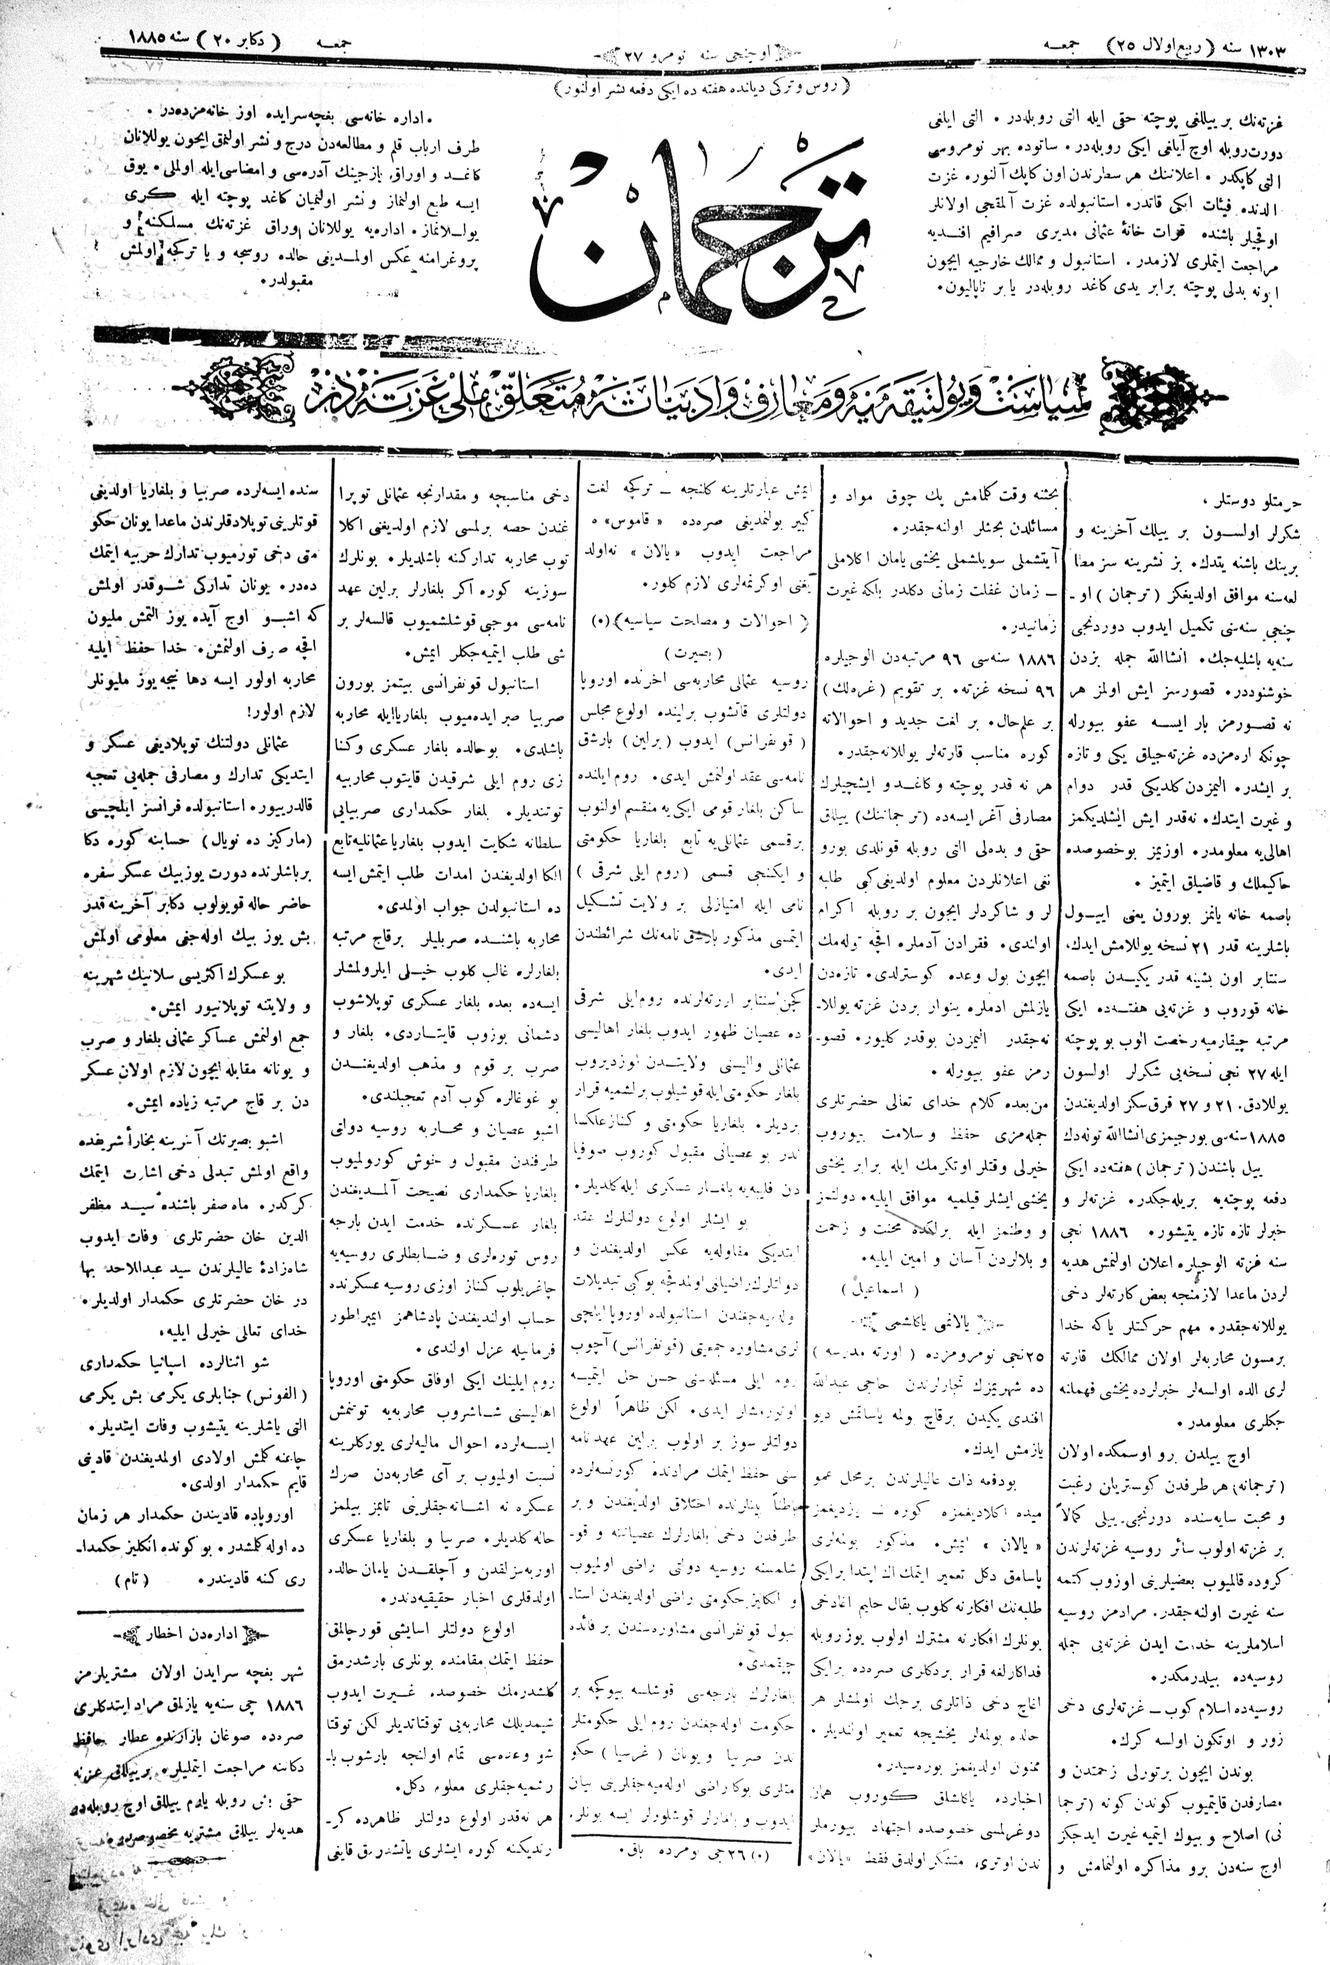 ١٣٠٣ سنه ( ربيع اولال ٢٥) جمعه
اوچنجى سنه نومرو ٢٧
جمعه ( دكابر ٢٠ ) سنه ١٨٨٥
( روس و تركى ديانده هفته ده ايكى دفعه نشر اولنور )
غزته‌نك بر ييللغى پوچته حقى ايله التى روبله‌در . التى ايلغى
دورت روبله اوچ آيلغى ايكى روبله‌در . ساتوده بهر نومروسى
التى كاپكدر . اعلاننك هر سطرندن اون كاپك آلنور . غزت
الدنده فيئات ايكى قاتدر . استانبولده غزت آلمقجى اولانلر
اوقجيلر باشنده قرات خانۀ عثمانى مديرى صرافيم افنديه
مراجعت ايتملرى لازمدر . استانبول و ممالك خارجيه ايچون
ابونه بدلى پوچته برابر يدى كاغد روبله‌در يا بر ناپاليون .
ترجمان
. اداره خانه‌سى بغچه سرايده اوز خانه مزده‌در .
طرف ارباب قلم و مطالعه‌دن درج و نشر اولنمق ايچون يوللانان
كاغد و اوراق يازجينك آدره‌سى و امضاسى ايله اولملى . يوق
ايسه طبع اولنماز و نشر اولنميان كاغد پوچته ايله كرى
يوللانماز . اداره‌يه يوللانان اوراق غزته‌نك مسلكنه و
پروغرامنه عكس اولمديغى حالده روسجه و يا تركجه اولمش
مقبولدر .
سياست و پولتيقه‌يه و معارف و ادبياته متعلق ملى غزته‌در
حرمتلو دوستلر ،
شكرلر اولسون بر ييلك آخرينه و
برينك باشنه يتدك . بز نشرينه سز مطا
لعه‌سنه موافق اولديغكز ( ترجمان ) او ـ
چنجى سنه‌سنى تكميل ايدوب دوردنجى
سنه‌يه باشليه‌جك . انشاالله جمله بزدن
خوشنوددر . قصورسز ايش اولمز هر
نه قصورمز بار ايسه عفو بيورله
چونكه اره‌مزده غزته‌جيلق يكى و تازه
بر ايشدر . المزدن كلديكى قدر دوام
و غيرت ايتدك . نه‌قدر ايش ايشلديكمز
اهالى‌يه معلومدر . اوزيمز بوخصوصده
حاكيملك و قاضيلق ايتميز .
باصمه خانه يانمز بورون يعنى اييول
باشلرينه قدر ٢١ نسخه يوللامش ايدك .
سنتابر اون بشينه قدر يكيدن باصمه
خانه قوروب و غزته‌يى هفته‌ده ايكى
مرتبه چيقارميه رخصت الوب بو پوچته
ايله ٢٧ نجى نسخه‌يى شكرلر اولسون
يوللادق . ٢١ و ٢٧ قرق سكز اولديغندن
١٨٨٥ سنه‌سى بورجيمزى انشاالله توله‌دك
ييل باشندن ( ترجمان ) هفته‌ده ايكى
دفعه پوچته‌يه بريله‌جكدر . غزته‌لر و
خبرلر تازه تازه يتيشور . ١٨٨٦ نجى
سنه غزته الوجيلره اعلان اولنمش هديه
لردن ماعدا لازمنجه بعض كارته‌لر دخى
يوللانه‌جقدر . مهم حركتلر ياكه خدا
برمسون محاربه‌لر اولان ممالكك قارته
لرى الده اولسه‌لر خبرلرده يخشى فهمانه
جكلرى معلومدر .
اوچ ييلدن برو اوسمكده اولان
(ترجمانه) هر طرفدن كوستريان رغبت
و محبت سايه‌سنده دورنجى ييلى كمالاً
بر غزته اولوب سائر روسيه غزته‌لرندن
كروده قالميوب بعضيلرينى اوزوب كتمه
سنه غيرت اولنه‌جقدر . مرادمز روسيه
اسلاملرينه خدمت ايدن غزته‌يى جمله
روسيه‌ده بيلدرمكدر .
روسيه‌ده اسلام كوب ـ غزته‌لرى دخى
زور و اوتكون اولسه كرك .
بوندن ايچون برتورلى زحمتدن و
مصارفدن قايتميوب كوندن كونه (ترجما
نى) اصلاح و بيوك ايتميه غيرت ايدجكز
اوچ سنه‌دن برو مذاكره اولنمامش و
بحثنه وقت كلمامش پك چوق مواد و
مسائلدن بحثلر اولنه‌جقدر .
آيتشملى سويلشملى يخشى يامان اكلاملى
ـ زمان غفلت زمانى دكلدر بلكه غيرت
زمانيدر .
١٨٨٦ سنه‌سى ٩٦ مرتبه‌دن الوجيلره
٩٦ نسخه غزته . بر تقويم (غره‌لك)
بر علم‌حال . بر لغت جديد و احوالانه
كوره مناسب قارته‌لر يوللانه‌جقدر .
هر نه قدر پوچته و كاغد و ايشچيلرك
مصارفى آغر ايسه‌ده (ترجماننك) ييللق
حقى و بده‌لى التى روبله قونلدى بورو
نغى اعلانلردن معلوم اولديغى كبى طلبه
لر و شاكردلر ايچون بر روبله اكرام
اولندى . فقرادن آدملره اقچه توله‌مك
ايچون بول وعده كوسترلدى . تازه‌دن
يازلمش ادملره ينوار بردن غزته يوللا ـ
نه‌جقدر المزدن بوقدر كليور . قصو ـ
رمز عفو بيورله .
من بعده كلام خداى تعالى حضرتلرى
جمله‌مزى حفظ و سلامت بيوروب
خيرلى وقتلر اوتكرمك ايله برابر يخشى
يخشى ايشلر قيلميه موافق ايليه . دولتمز
و وطنمز ايله برلكده محنت و زحمت
و بلالردن آسان و امين ايليه .
( اسماعيل )
يالانمى ياكاشمى
٢٥ نجى نومرومزده ( اورته مدرسه )
ده شهريمزك تجارلرندن حاجى عبدالله
افندى يكيدن برقاچ بولمه ياساتمش ديو
يازمش ايدك .
بودفعه ذات عاليلرندن برمحل عمو
ميده اكلاديغمزه كوره ـ يزديغمز
« يالان » ايمش . مذكور بولمه‌لرى
ياسامق دكل تعمير ايتمك اك ابتدا برايكى
طلبه‌نك افكارنه كلوب بقال حليم اغادخى
بونلرك افكارنه مشترك اولوب يوز روبله
فداكارلغه قرار بردكلرى صره‌ده برايكى
اغاچ دخى ذاتلرى برجك اولمشلر هر
حالده بولمه‌لر يخشيجه تعمير اولنديلر .
ممنون اولديغمز بوره‌سيدر .
اخبارده ياكاشلق كوروب همان
دوغرلمسى خصوصده اجتهاد بيورملر
ندن اوترى متشكر اولدق فقط «يالان»
ايمش عبارتلرينه كلنجه ـ تركجه لغت
كبير بولنمديغى صره‌ده « قاموس » ه
مراجعت ايدوب « يالان » نه‌اولد
يغنى اوكرنمه‌لرى لازم كلور .
( احوالات و مصالحت سياسيه ) (٠)
( بصيرت )
روسيه عثمانلى محاربه‌سى اخرنده اوروپا
دولتلرى قاتشوب برلينده اولوغ مجلس
(قونفرانس) ايدوب (برلين) بارشق
نامه‌سى عقد اولنمش ايدى . روم ايلنده
ساكن بلغار قومى ايكى‌يه منقسم اولنوب
برقسمى عثمانلى‌يه تابع بلغاريا حكومتى
و ايكنجى قسمى (روم ايلى شرقى)
نامى ايله امتيازلى بر ولايت تشكيل
ايتمسى مذكور بارشق نامه‌نك شرائطندن
ايدى .
كچن سنتابر ارته‌لرنده روم ايلى شرقى
ده عصيان ظهور ايدوب بلغار اهاليسى
عثمانلى واليسنى ولايتدن اوزديروب
بلغار حكومتى ايله قوشيلوب برلشميه قرار
برديلر . بلغاريا حكومتى و كنازعلكسا
ندر بو عصيانى مقبول كوروب صوفيا
دن فليبه‌يه بلغار عسكرى ايله كلديلر .
بو ايشلر اولوغ دولتلرك عقد
ايتديكى مقاوله‌يه عكس اولديغندن و
دولتلرك راضيانى اولمدقچه بوكبى تبديلات
اوله‌ميه‌جغندن استانبولده اوروپا ايلچى
لرى مشاوره جمعيتى (قونفرانس) آچوب
روم ايلى مسئله‌سنى حسن حل ايتميه
اوتورمشلر ايدى . لكن ظاهراً اولوغ
دولتلر سوز بر اولوب برلين عهدنامه
سنى حفظ ايتمك مرادنده كورنسه‌لرده
باطناً بينلرنده اختلاق اولديغندن و بر
طرفدن دخى بلغارلرك عصياننه و قو ـ
شلمسنه روسيه دولتى راضى اولميوب
و انكليز حكومتى راضى اولديغندن استا ـ
نبول قونفرانسى مشاوره‌سندن بر فائده
چيقمدى .
بلغارلرك بارجه‌سى قوشلسه بيوكچه بر
حكومت اوله‌جغندن روم ايلى حكومتلر
ندن صربيا و يونان (غرسيا) حكو
متلرى بوكا راضى اوله‌ميه‌جقلرينى بيان
ايدوب و بلغارلر قوشلورلر ايسه بونلر .
(٠) ٢٦ جى نومرده باق .
دخى مناسبچه و مقدارنجه عثمانلى توپرا
غندن حصه برلمسى لازم اولديغى اكلا
توب محاربه تداركنه باشلديلر . بونلرك
سوزينه كوره اكر بلغارلر برلين عهد
نامه‌سى موجبى قوشلشميوب قالسه‌لر بر
شى طلب ايتميه‌جكلر ايمش .
استانبول قونفرانسى بيتمز بورون
صربيا صبر ايده‌ميوب بلغاريا ايله محاربه
باشلدى . بوحالده بلغار عسكرى و كنا
زى روم ايلى شرقيدن قايتوب محاربيه
توتنديلر . بلغار حكمدارى صربيايى
سلطانه شكايت ايدوب بلغاريا عثمانليه تابع
الكا اولديغندن امدات طلب ايتمش ايسه
ده استانبولدن جواب اولمدى .
محاربه باشنده صربليلر برقاچ مرتبه
بلغارلره غالب كلوب خيلى ايلرولمشلر
ايسه‌ده بعده بلغار عسكرى توپلاشوب
دشمانى بوزوب قايتاردى . بلغار و
صرب بر قوم و مذهب اولديغندن
بو غوغالره كوب آدم تعجبلندى .
اشبو عصيان و محاربه روسيه دولتى
طرفندن مقبول و خوش كورولميوب
بلغاريا حكمدارى نصيحت آلمديغندن
بلغار عسكرنده خدمت ايدن بارجه
روس توره‌لرى و ضابطلرى روسيه‌يه
چاغريلوب كناز اوزى روسيه عسكرنده
حساب اولنديغندن پادشاهمز ايمپراطور
فرمانيله عزل اولندى .
روم ايلينك ايكى اوفاق حكومتى اوروپا
اهاليسنى شاشروب محاربه‌يه توتنمش
ايسه‌لرده احوال ماليه‌لرى يوركلرينه
نسبت اولميوب بر آى محاربه‌دن صرك
عسكره نه اشانه‌جقلرينى تابمز بيلمز
حاله كلديلر . صربيا و بلغاريا عسكرى
اوربه‌سزلقدن و آچلقدن يامان حالده
اولدقلرى اخبار حقيقيه‌دندر .
اولوغ دولتلر اسايشى قورچالمق
حفظ ايتمك مقامنده بونلرى بارشدرمق
كلشدرمك خصوصده غيرت ايدوب
شيمديلك محاربه‌يى توقتاتديلر لكن توقتا
شو وعده‌سى تمام اولنجه بارشوب بلـ
رشميه‌جقلرى معلوم دكل .
هر نه‌قدر اولوغ دولتلر ظاهرده كر ـ
رنديكنه كوره ايشلرى ياتشدرمق قايغى
سنده ايسه‌لرده صربيا و بلغاريا اولديغى
قوتلرينى توپلادقلرندن ماعدا يونان حكو
متى دخى تورميوب تدارك حربيه ايتمك
ده‌در . يونان تداركى شوقدر اولمش
كه اشبو اوچ آيده يوز التمش مليون
اقچه صرف اولنمش . خدا حفظ ايليه
محاربه اولور ايسه دها نيجه يوز مليونلر
لازم اولور !
عثمانلى دولتنك توپلاديغى عسكر و
ايتديكى تدارك و مصارفى جمله‌يى تعجبه
قالدريبور . استانبولده فرانسز ايلچيسى
(ماركيز ده نويال) حسابنه كوره دكا
بر باشلرنده دورت يوزبيك عسكر سفره
حاضر حاله قويولوب دكابر آخرينه قدر
بش يوز بيك اوله‌جغى معلومى اولمش
بو عسكرك اكثريسى سلانيك شهرينه
و ولايتنه توپلانيور ايمش .
جمع اولنمش عساكر عثمانى بلغار و صرب
و يونانه مقابله ايچون لازم اولان عسكر
دن بر قاچ مرتبه زياده ايمش .
اشبو بصيرتك آخرينه بخارأ شريفده
واقع اولمش تبدلى دخى اشارت ايتمك
كركدر . ماه صفر باشنده سيد مظفر
الدين خان حضرتلرى وفات ايدوب
شاه‌زادۀ عاليلرندن سيد عبدالاحد بها
در خان حضرتلرى حكمدار اولديلر .
خداى تعالى خيرلى ايليه .
شو اثنالرده اسپانيا حكمدارى
(الفونس) جنابلرى يكرمى بش يكرمى
التى ياشلرينه يتيشوب وفات ايتديلر .
چاغنه كلمش اولادى اولمديغندن قادينى
قايم حكمدار اولدى .
اوروپاده قاديندن حكمدار هر زمان
ده اوله كلمشدر . بو كونده انكليز حكمدا ـ
رى كنه قاديندر . ( تام )
اداره‌دن اخطار
شهر بغچه سرايدن اولان مشتريلرمز
١٨٨٦ جى سنه‌يه يازلمق مراد ايتدكلرى
صره‌ده صوغان بازارنده عطار حافظ
دكاننه مراجعت ايتمليلر . بر ييللق غزته
حقى بش روبله يارم ييللق اوچ روبله‌در
هديه‌لر ييللق مشتريه مخصوصدر .